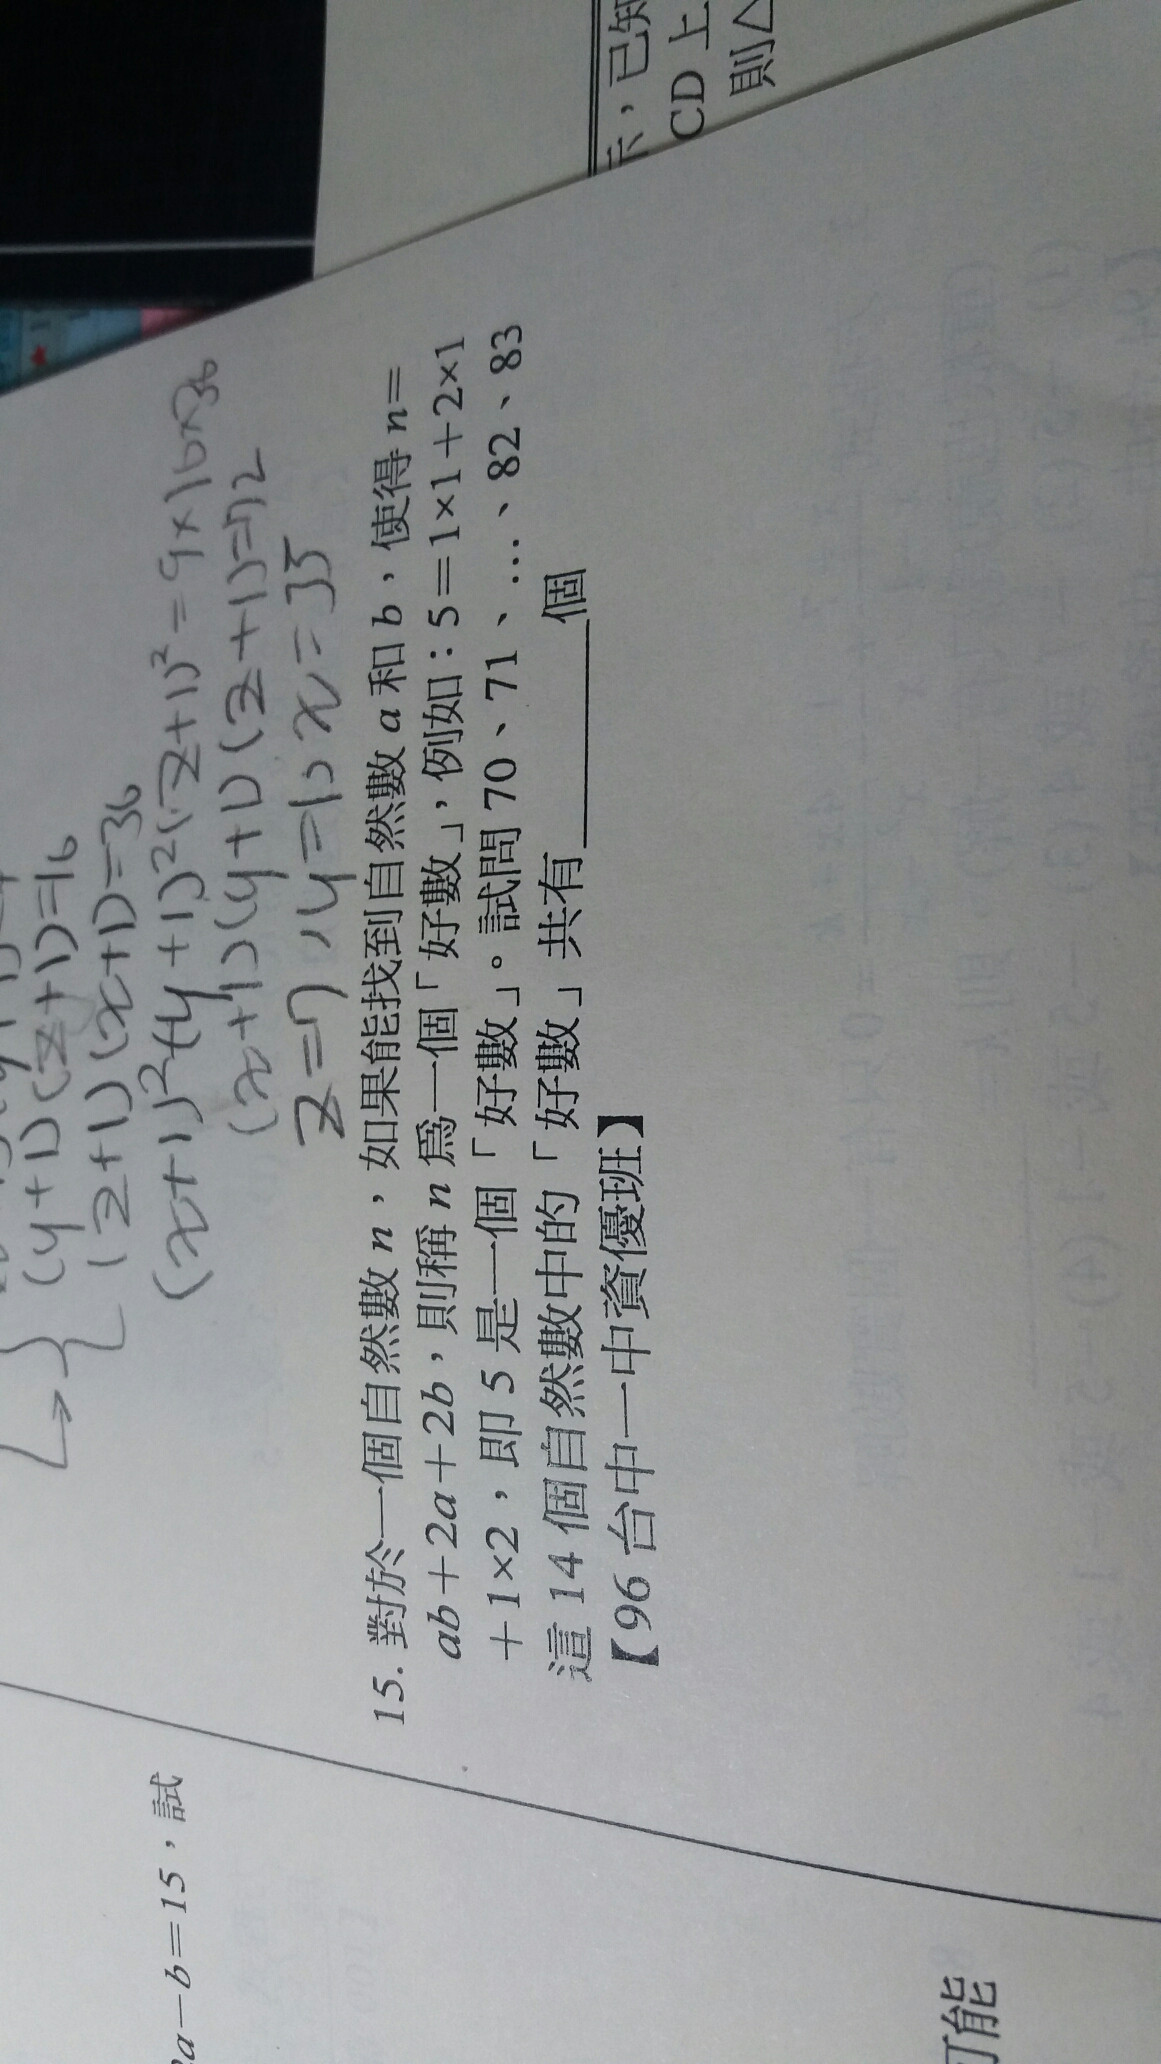 (y+1)(z+1)=16
(z+1)(x+1)=36
(x+1)²(y+1)²(z+1)²=9×16×36
(x+1)(y+1)(z+1)=72
z=7, y=1, x=35
15. 對於一個自然數 n，如果能找到自然數 a 和 b，使得 n=
ab+2a+2b，則稱 n 爲一個「好數」，例如：5=1×1+2×1
+1×2，即 5 是一個「好數」。試問 70、71、…、82、83
這 14 個自然數中的「好數」共有________個
【96 台中一中資優班】
a−b=15，試
可能
示，已知
CD 上
則△